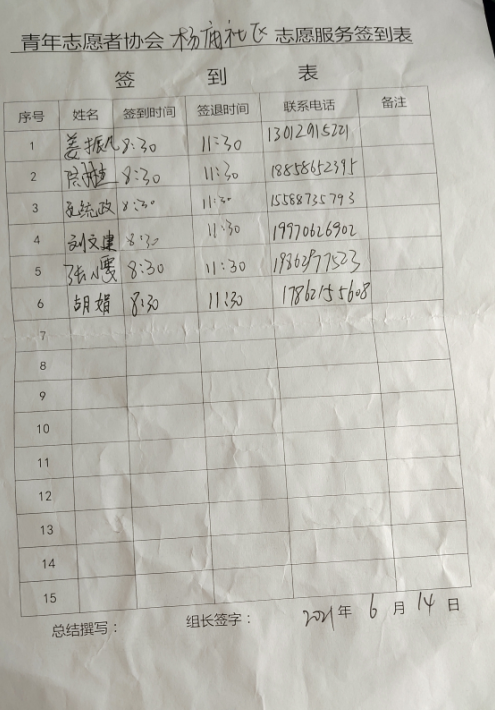 青年志愿者协会 杨庙社区 志愿服务签到表
签 到 表
序号 姓名 签到时间 签退时间 联系电话 备注
1 姜振凡 8:30 11:30 13012915221
2 8:30 11:30 18858652395
3 8:30 11:30 15588735793
4 刘文建 8:30 11:30 19970626902
5 8:30 11:30 19862977523
6 胡娟 8:30 11:30 17862155608
7
8
9
10
11
12
13
14
15
总结撰写： 组长签字： 2021年 6 月 14 日